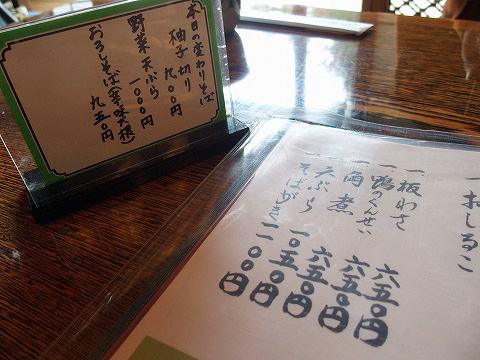 本日の変わりそば
柚子切り 九〇〇円
野菜天ぷら 一〇〇〇円
おろしそば(辛味大根) 九五〇円
一 おしるこ
一 板わさ 六五〇円
一 鴨のくんせい 六五〇円
一 角煮 六五〇円
一 天ぷら 一〇五〇円
一 そばがき 一一〇〇円